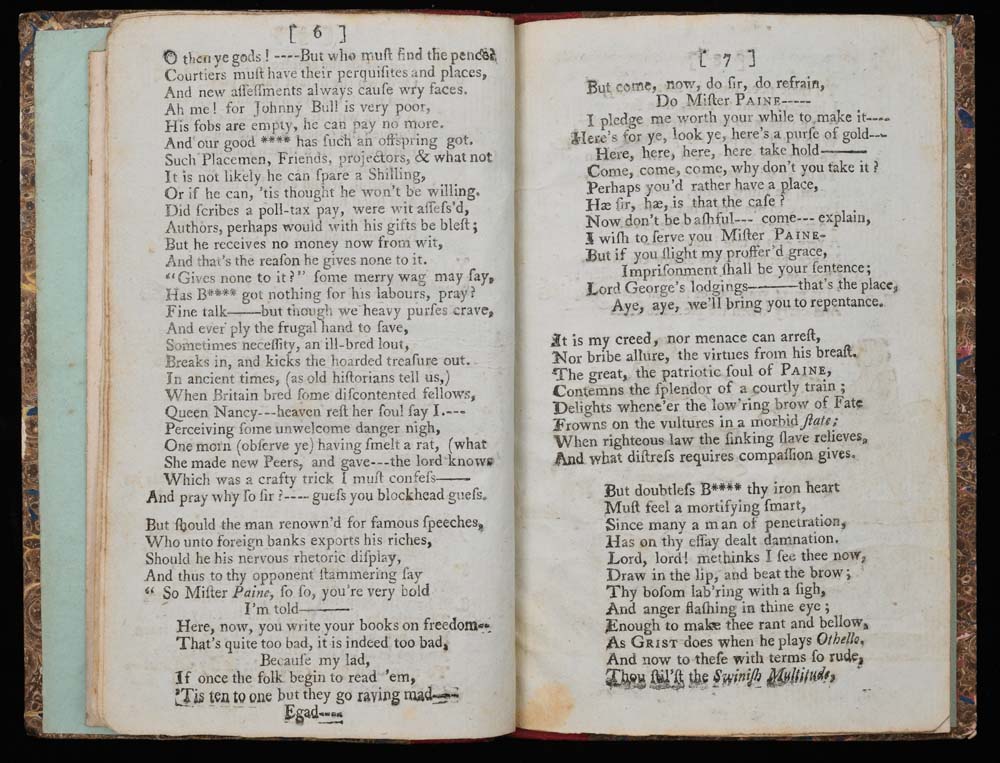 [ 6 ]
O then ye gods ! ----But who muſt find the pence?
Courtiers muſt have their perquiſites and places,
And new aſſeſſments always cauſe wry faces.
Ah me! for Johnny Bull is very poor,
His fobs are empty, he can pay no more.
And our good **** has ſuch an offspring got.
Such Placemen, Friends, projectors, & what not
It is not likely he can ſpare a Shilling,
Or if he can, 'tis thought he won't be willing.
Did ſcribes a poll-tax pay, were wit aſſeſs'd,
Authors, perhaps would with his gifts be bleſt;
But he receives no money now from wit,
And that's the reaſon he gives none to it.
“Gives none to it?” ſome merry wag may ſay,
Has B**** got nothing for his labours, pray?
Fine talk——but though we heavy purſes crave,
And ever ply the frugal hand to ſave,
Sometimes neceſſity, an ill-bred lout,
Breaks in, and kicks the hoarded treaſure out.
In ancient times, (as old hiſtorians tell us,)
When Britain bred ſome diſcontented fellows,
Queen Nancy---heaven reſt her ſoul ſay I.---
Perceiving ſome unwelcome danger nigh,
One morn (obſerve ye) having ſmelt a rat, (what
She made new Peers, and gave---the lord knows
Which was a crafty trick I muſt confeſs——
And pray why ſo ſir ?---- gueſs you blockhead gueſs.
But ſhould the man renown'd for famous ſpeeches,
Who unto foreign banks exports his riches,
Should he his nervous rhetoric diſplay,
And thus to thy opponent ſtammering ſay
“ So Miſter Paine, ſo ſo, you're very bold
I'm told———
Here, now, you write your books on freedom--
That's quite too bad, it is indeed too bad,
Becauſe my lad,
If once the folk begin to read 'em,
'Tis ten to one but they go raving mad——
Egad----
[ 7 ]
But come, now, do ſir, do refrain,
Do Miſter PAINE-----
I pledge me worth your while to make it----
Here's for ye, look ye, here's a purſe of gold---
Here, here, here, here take hold———
Come, come, come, why don't you take it ?
Perhaps you'd rather have a place,
Hæ ſir, hæ, is that the caſe ?
Now don't be baſhful--- come--- explain,
I wiſh to ſerve you Miſter PAINE-
But if you ſlight my proffer'd grace,
Impriſonment ſhall be your ſentence;
Lord George's lodgings———that's the place,
Aye, aye, we'll bring you to repentance.
It is my creed, nor menace can arreſt,
Nor bribe allure, the virtues from his breaſt.
The great, the patriotic ſoul of PAINE,
Contemns the ſplendor of a courtly train ;
Delights whene'er the low'ring brow of Fate
Frowns on the vultures in a morbid ſtate;
When righteous law the ſinking ſlave relieves,
And what diſtreſs requires compaſſion gives.
But doubtleſs B**** thy iron heart
Muſt feel a mortifying ſmart,
Since many a man of penetration,
Has on thy eſſay dealt damnation.
Lord, lord! methinks I ſee thee now,
Draw in the lip, and beat the brow;
Thy boſom lab'ring with a ſigh,
And anger flaſhing in thine eye ;
Enough to make thee rant and bellow,
As GRIST does when he plays Othello.
And now to theſe with terms ſo rude,
Thou ſtil'ſt the Swiniſh Multitude,